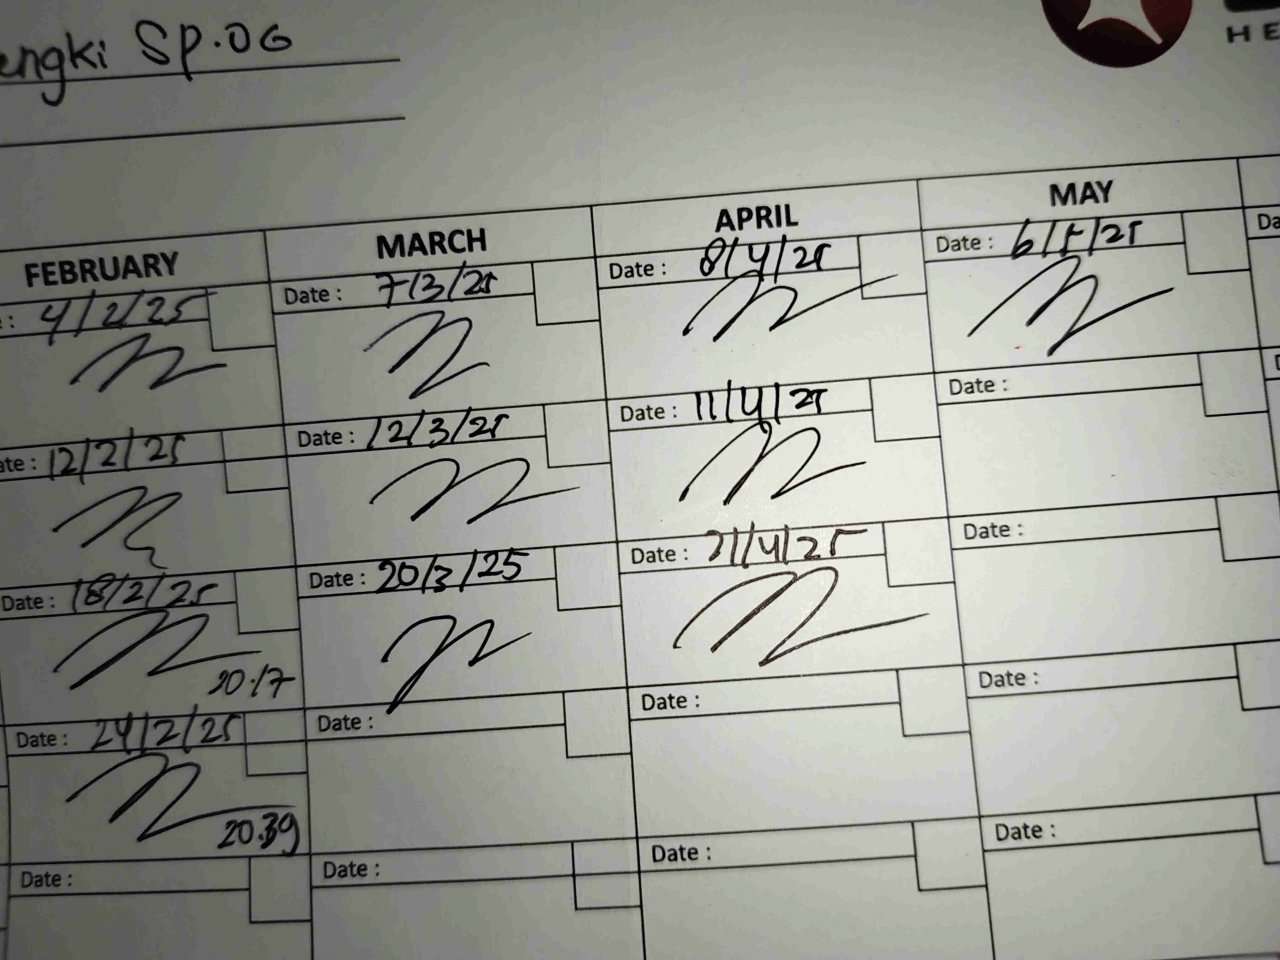 engki SP.OG
HE
FEBRUARY MARCH APRIL MAY
: 4/2/25 Date : 7/3/25 Date : 8/4/25 Date : 6/5/25 Da
ate : 12/2/25 Date : 12/3/25 Date : 11/4/25 Date :
Date : 18/2/25 Date : 20/3/25 Date : 21/4/25 Date :
20.17
Date : 24/2/25 Date : Date : Date :
20.39
Date : Date : Date : Date :